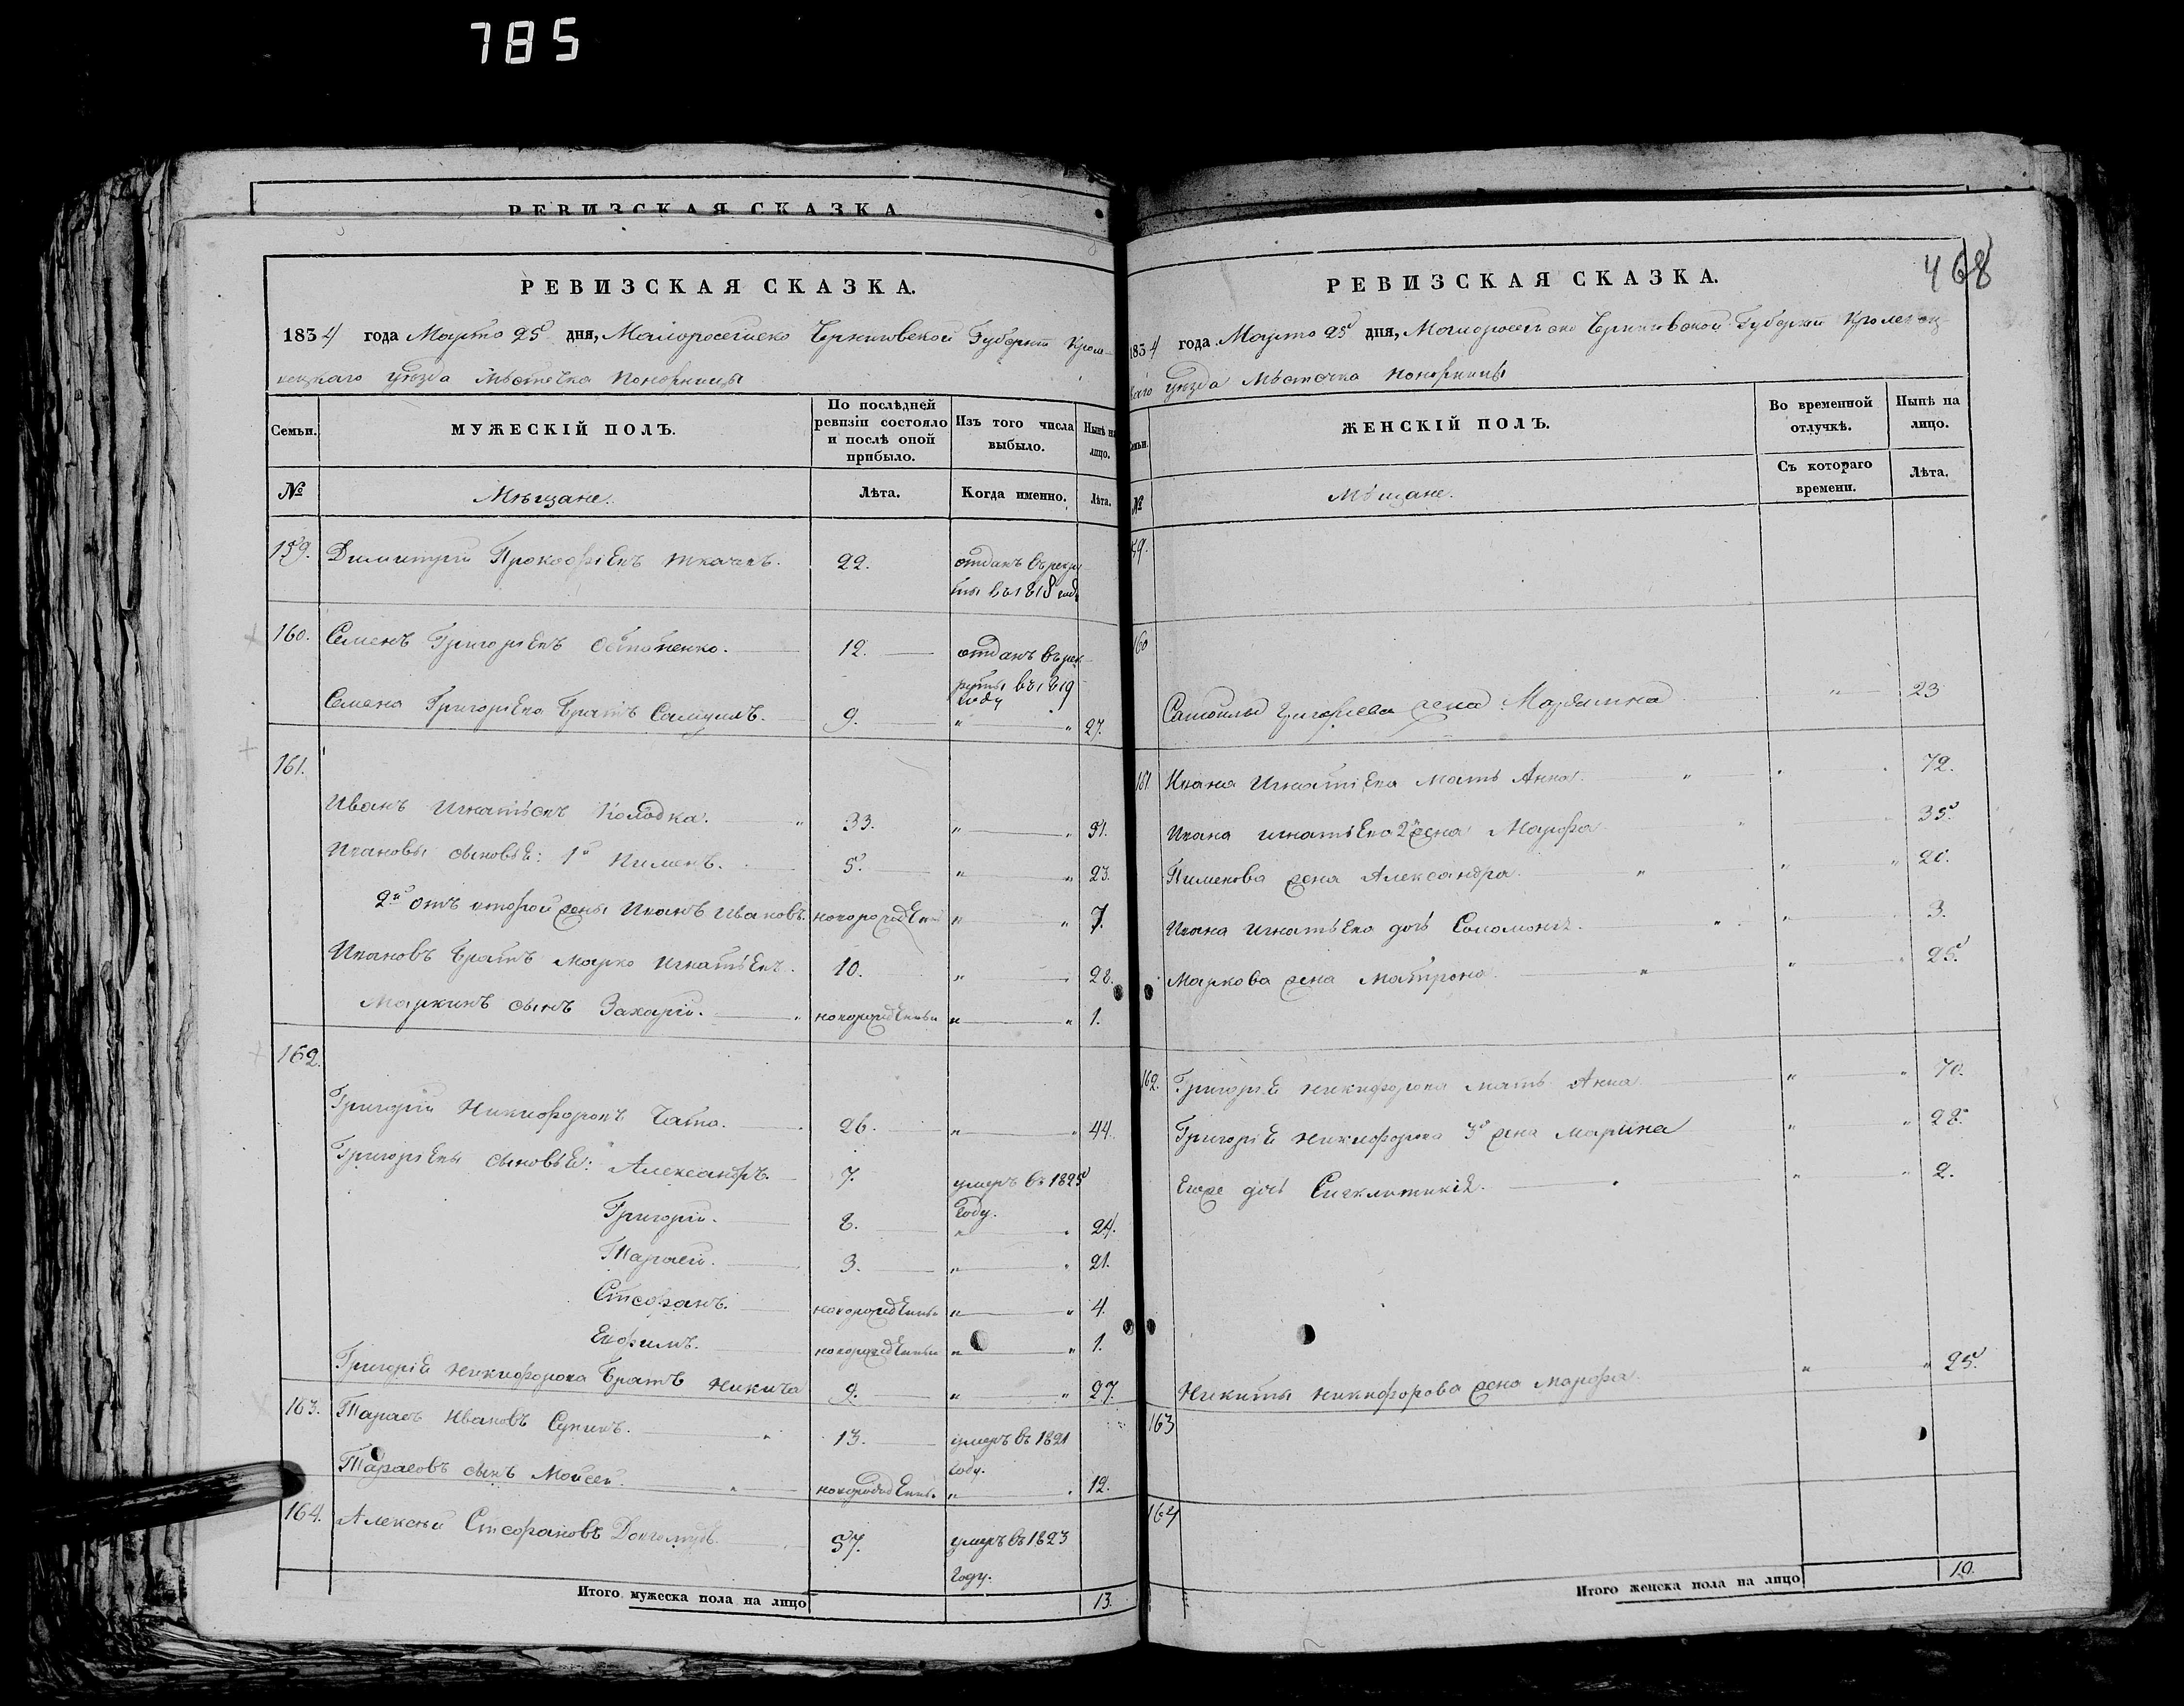 785
РЕВИЗСКАЯ СКАЗКА
РЕВИЗСКАЯ СКАЗКА.
1834 года Марта 25 дня, Малоросейско Черниговской Губернии Кроле-
вецкаго уезда Местечка Понорницы
Семьи. МУЖЕСКІЙ ПОЛЪ. По послѣдней ревизіи состояло и послѣ оной прибыло. Изъ того числа выбыло. Нынѣ на лицо.
№ Мѣщане. Лѣта. Когда именно. Лѣта.
159. Димитрій Прокофіевъ Ткачевъ. 22. отданъ въ рекру
ты въ 1818 году
160. Семенъ Григоріевъ 12. отданъ въ рек-
руты въ 1819
году
Семена Григоріева Братъ Самуилъ. 9. " " 27.
161.
Иванъ Игнатьевъ Колодка. " 33. " " 51.
Ивановы сыновья: 1й Пименъ. 5. " " 23.
2й отъ второй жены Иванъ Ивановъ. новорожденъ " " 7.
Ивановъ братъ Марко Игнатьевъ. 10. " " 28.
Маркинъ сынъ Захарій. " новорожденны " " 1.
162.
Григорій Никифоровъ Чато. 26. " " 44.
Григоріевы сыновья: Александръ. 7. умеръ въ 1825
году.
Григорій. 8. " " 24.
Тарасій. 3. " " 21.
Стефанъ. новорожденны " " 4.
Евфимъ. новорожденны " " 1.
Григорія Никифорова братъ Никита 9. " " 27.
163. Тарасъ Ивановъ " 13. умеръ въ 1821
году.
Тарасовъ сынъ Мойсей. " новорожденны " " 12.
164. Алексѣй Стефановъ 57. умеръ въ 1823
году.
Итого мужеска пола на лицо 13.
468
РЕВИЗСКАЯ СКАЗКА.
1834 года Марта 25 дня, Малоросейско Черниговской Губернии Кролевец
каго уезда Местечка Понорницы
Семьи. ЖЕНСКІЙ ПОЛЪ. Во временной отлучкѣ. Нынѣ на лицо.
Съ котораго времени. Лѣта.
№ Мѣщане.
59.
160
Самойлы Григориева жена " 23
161. Ивана Игнатіева мать Анна. " " " 72.
Ивана Игнатіева 2я жена Марфа " " 35.
Пименова жена Александра. " " " 20.
Ивана Игнатьева дочь Соломонія. " " 3.
Маркова жена Матрона. " " " 25.
162. Григорія Никифорова мать Анна " " 70.
Григорія Никифорова 3я жена Марина " " 28.
Егоже дочь Сигклитикія. " " " 2.
Никиты Никифорова жена Марфа. " " 25.
163
164
Итого женска пола на лицо 10.